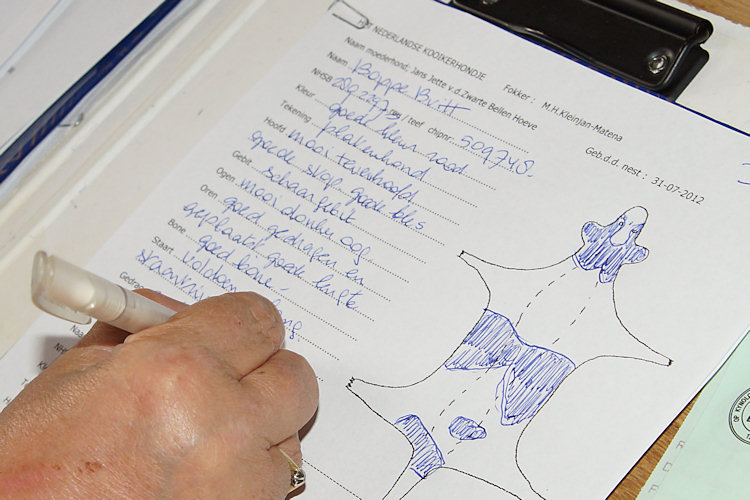 HET NEDERLANDSE KOOIKERHONDJE
Naam moederhond: Jans Jette v.d.Zwarte Bellen Hoeve
Fokker : M.H.Kleinjan-Matena
Naam Bappe Britt
Geb.d.d. nest : 31-07-2012
NHSB reu / teef chipnr: 509748.
Kleur goede kleur rood
Tekening platenhond
Hoofd mooi tevenhoofd
goede stop goede bles
Gebit schaargebit
Ogen mooi donker oog
Oren goed gedragen en
geplaatst goede lengte
Bone goed bone
Staart voldoen
Gedra
Naa
NH